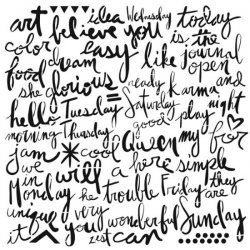 art idea Wednesday today
color believe you is the
food dream easy like journal
she glorious ready karma open
hello Tuesday Saturday and
morning Thursday good play night
jam cool Queen my for
we in will a here simple
Monday he trouble Friday they
unique very wonderful are
it you zest can Sunday